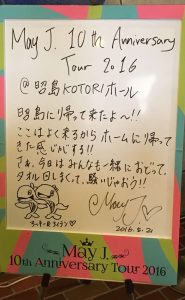 May J. 10th Anniversary
Tour 2016
@昭島KOTORIホール
昭島に帰って来たよ〜!!
ここはよく来るから ホームに帰って
きた感じがする!!
さぁ、今日はみんなも一緒におどって、
タオル回しまくって、騒いじゃおう!!
May J.
2016.5.21
May J.
10th Anniversary Tour 2016